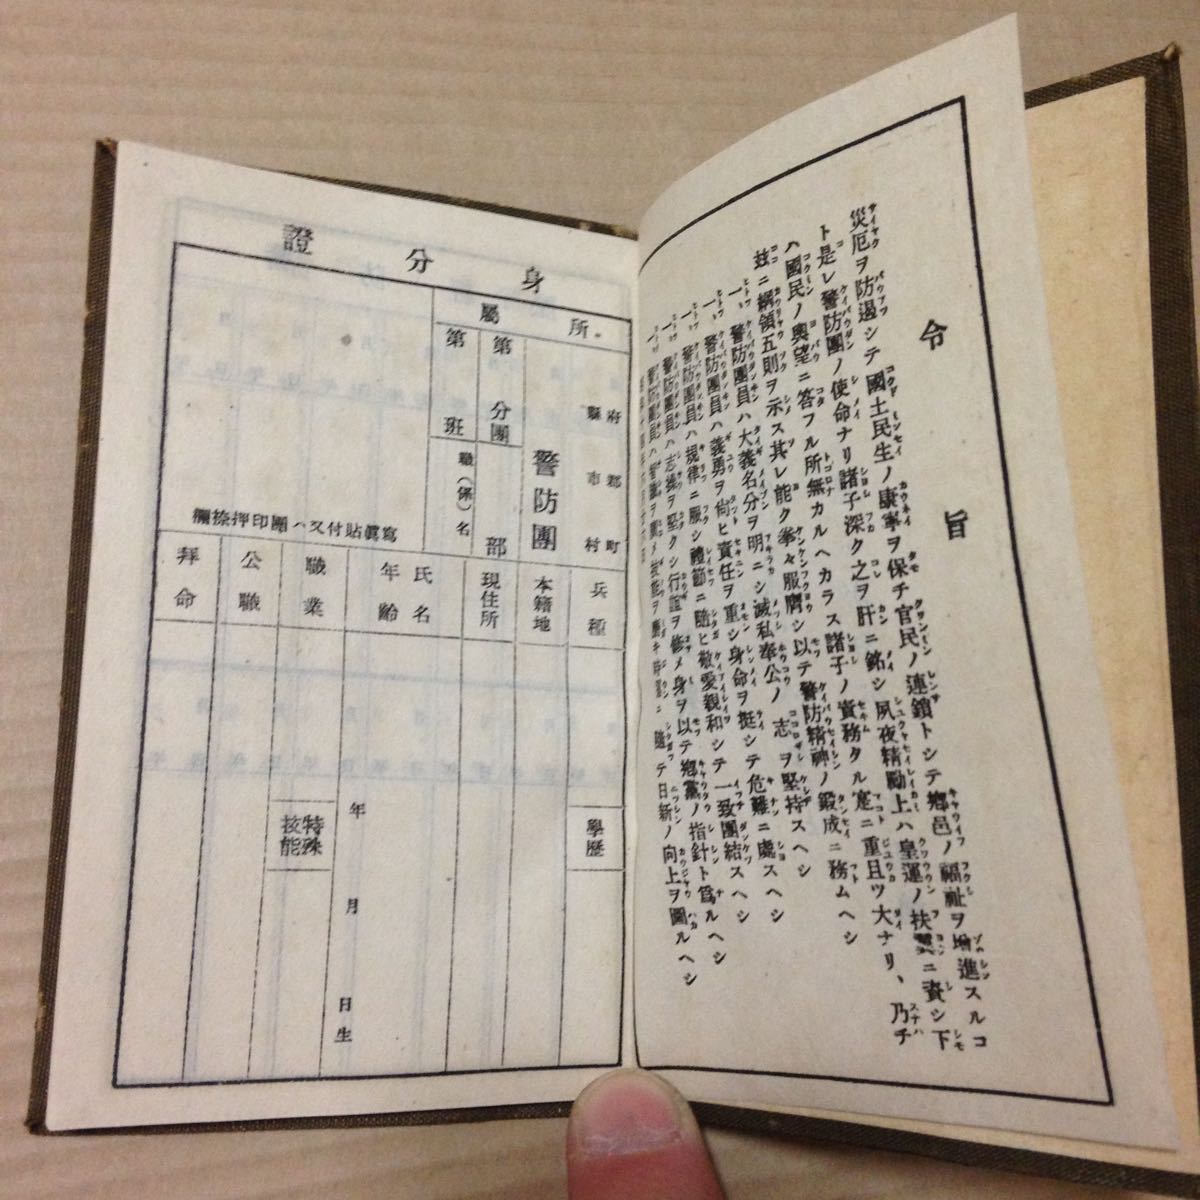 令旨
災厄ヲ防遏シテ國土民生ノ康寧ヲ保チ官民ノ連鎖トシテ鄕邑ノ福祉ヲ增進スルコ
ト是レ警防團ノ使命ナリ諸子深ク之ヲ肝ニ銘シ夙夜精勵上ハ皇運ノ扶翼ニ資シ下
ハ國民ノ輿望ニ答フル所無カルヘカラス諸子ノ責務タル寔ニ重且ツ大ナリ、乃チ
玆ニ綱領五則ヲ示ス其レ能ク拳々服膺シ以テ警防精神ノ鍛成ニ務ムヘシ
一、警防團員ハ大義名分ヲ明ニシ滅私奉公ノ志ヲ堅持スヘシ
一、警防團員ハ義勇ヲ尙ヒ責任ヲ重シ身命ヲ挺シテ危難ニ處スヘシ
一、警防團員ハ規律ニ服シ禮節ニ隨ヒ敬愛親和シテ一致團結スヘシ
一、警防團員ハ志操ヲ堅クシ行誼ヲ修メ身ヲ以テ鄕黨ノ指針ト爲ルヘシ
一、警防團員ハ智識ヲ廣メ技能ヲ磨キ時運ニ隨テ日新ノ向上ヲ圖ルヘシ
身分證
所屬
府縣
郡市
町村
警防團
第分團
部
第班
職(係)名
寫眞貼付又ハ團印押捺欄
兵種
本籍地
現住所
氏名
年齡
職業
公職
拜命
學歷
年月日生
特殊技能